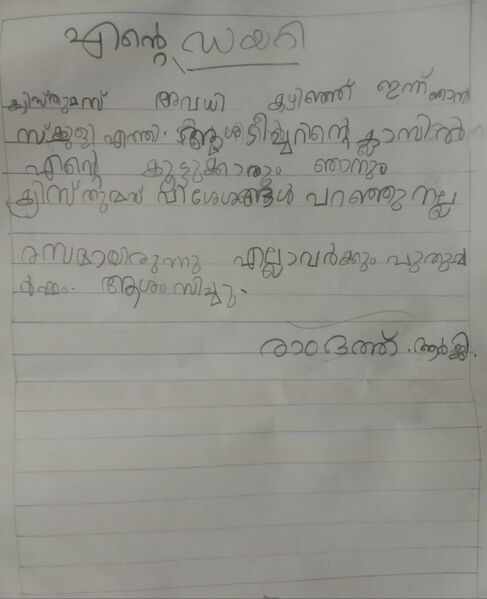 എന്റെ ഡയറി
ക്രിസ്തുമസ് അവധി കഴിഞ്ഞ് ഇന്ന് ഞാൻ
സ്കൂളി എത്തി. ടീച്ചറിന്റെ ക്ലാസിൽ
എന്റെ കൂട്ടുക്കാരും ഞാനും
ക്രിസ്തുമസ് വിശേശങ്ങൾ പറഞ്ഞു നല്ല
രസമായിരുന്നു എല്ലാവർക്കും പുതുവ
ർഷം. ആശംസിച്ചു.
രാംദത്ത്. ആർ.ജി.